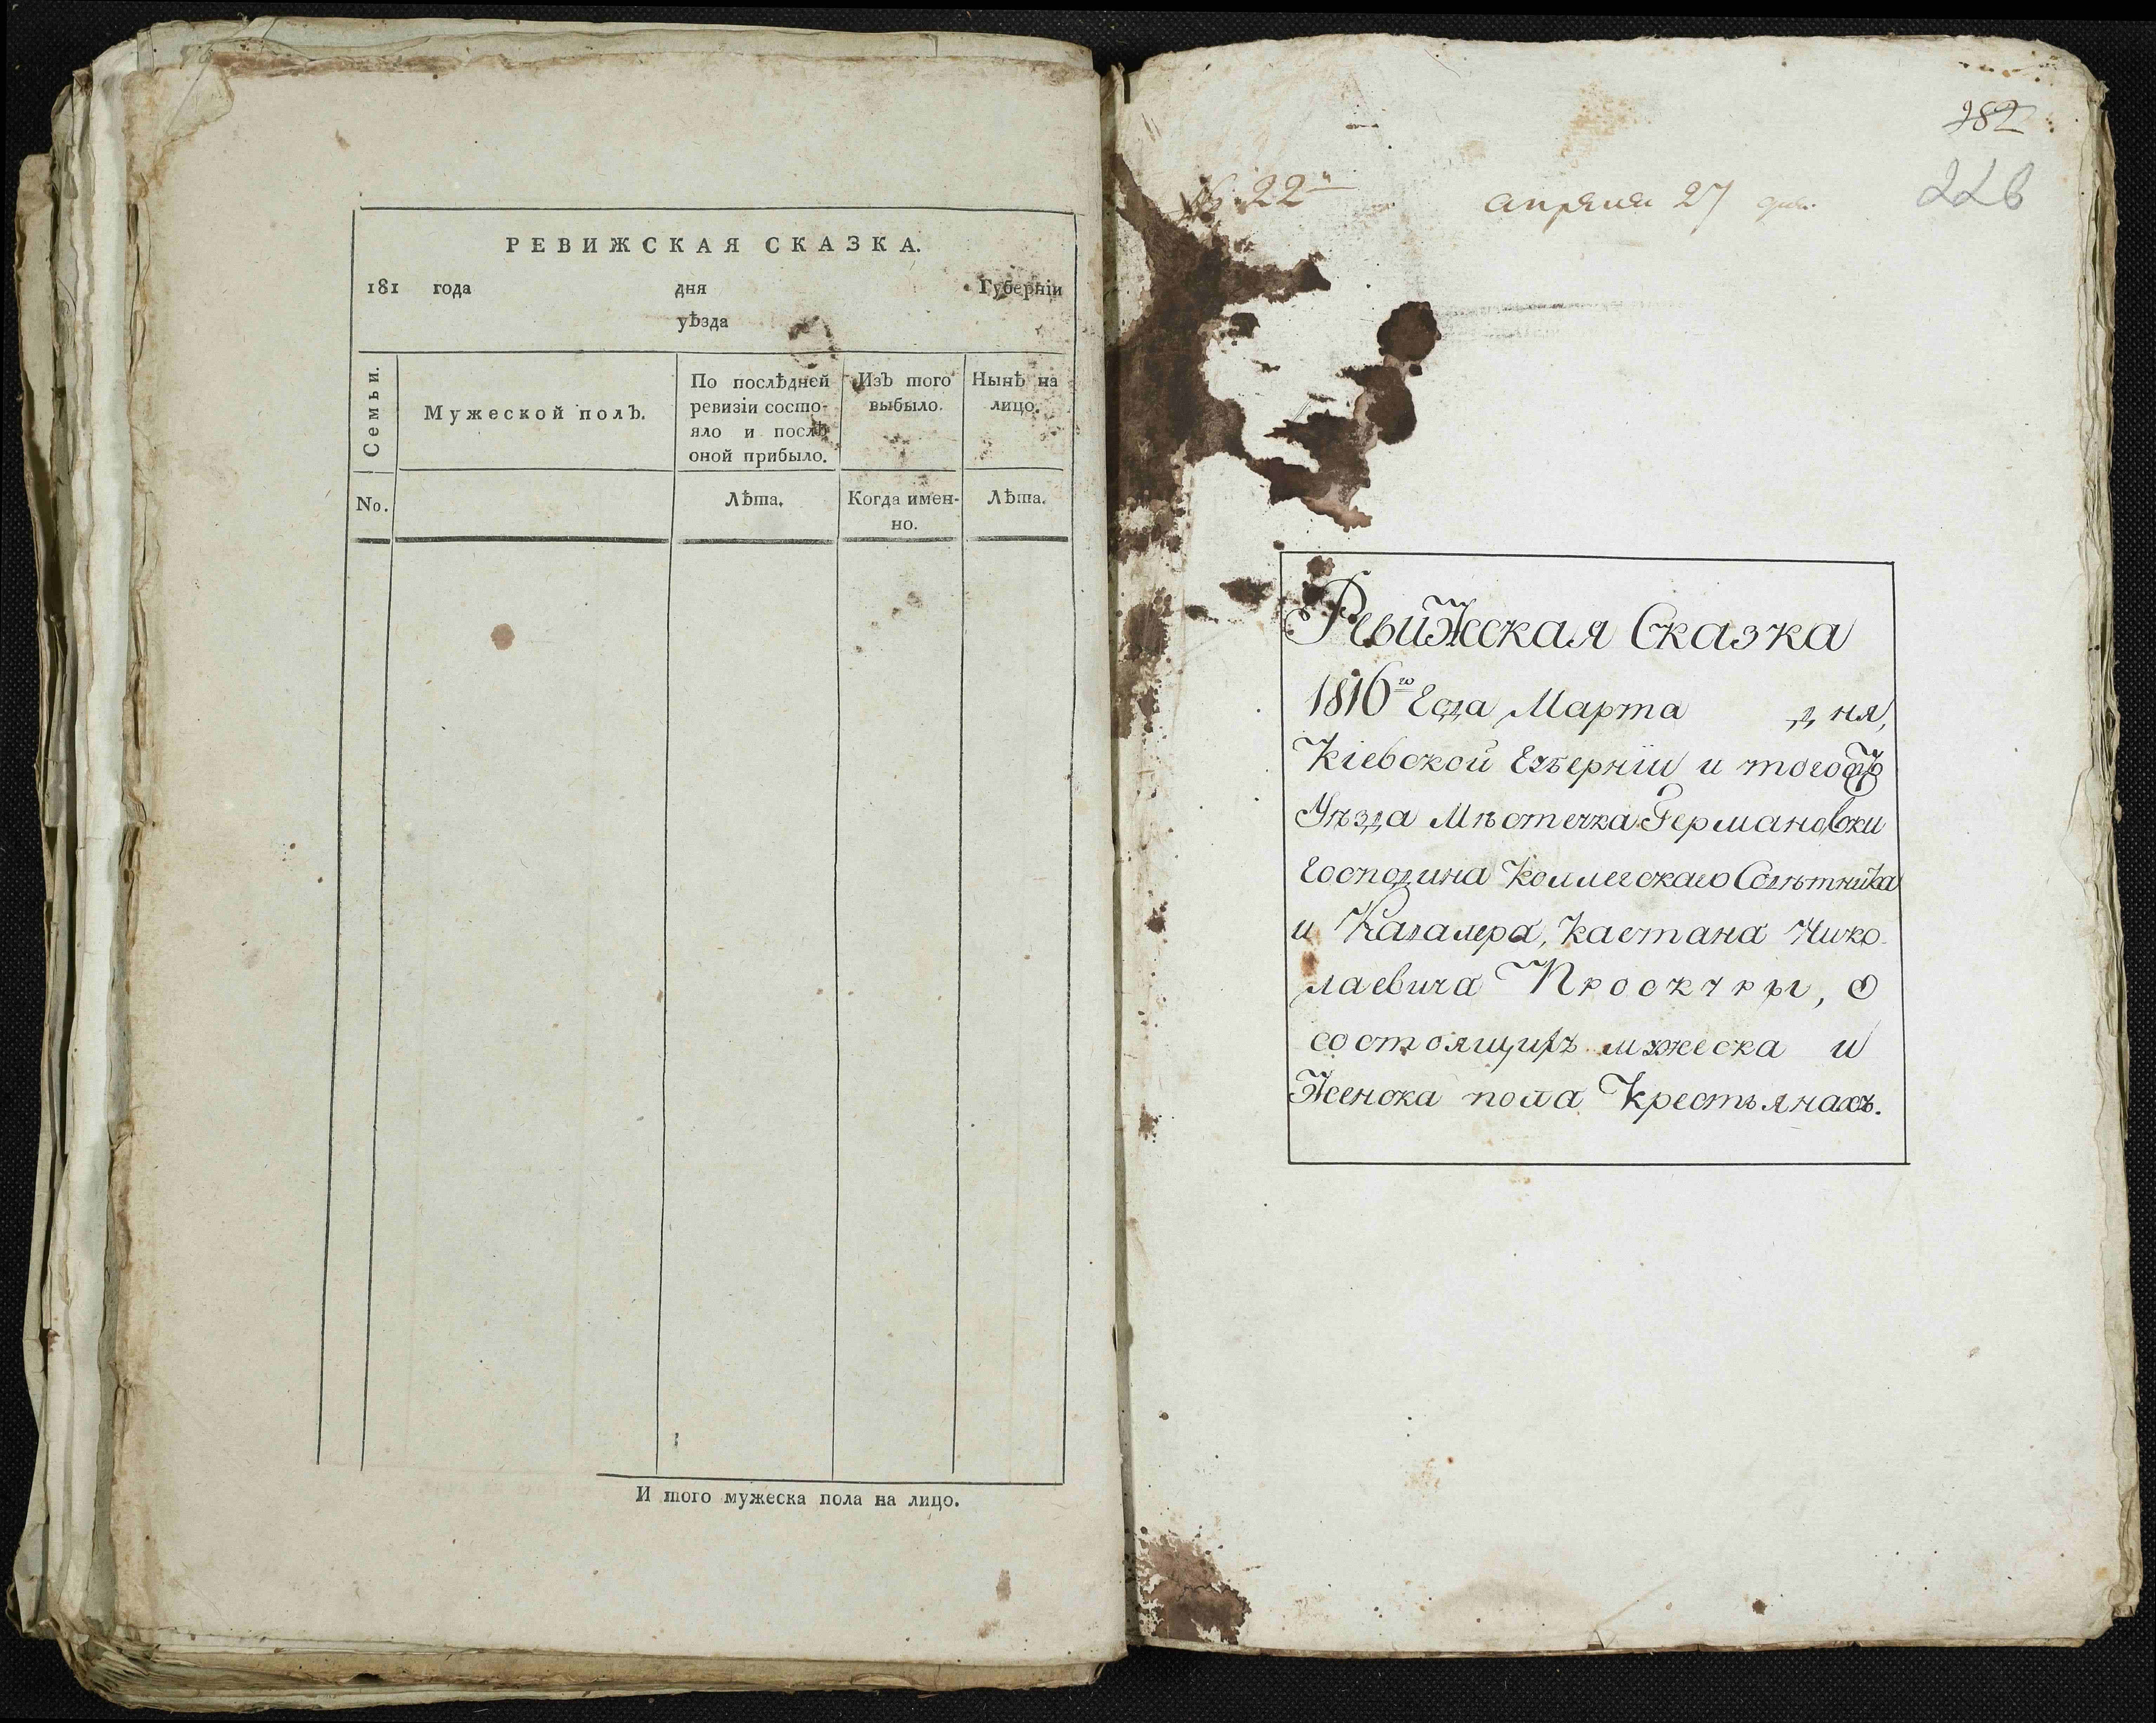 РЕВИЖСКАЯ СКАЗКА.
181 года дня Губерніи
уѣзда
Семьи.
Мужеской полъ.
По послѣдней
ревизіи состо-
яло и послѣ
оной прибыло.
Изъ того
выбыло.
Нынѣ на
лицо.
No.
Лѣта.
Когда имен-
но.
Лѣта.
И того мужеска пола на лицо.
282
226
№ 22й
апреля 27 дня.
Ревижская Сказка
1816го Года Марта дня,
Кіевской Губерніи и тогожъ
Уѣзда Мѣстечка Германовки
Господина Коллегскаго Совѣтника
и Кавалера, Каетана Нико-
лаевича Проскуры, о
состоящихъ мужеска и
Женска пола Крестьянахъ.